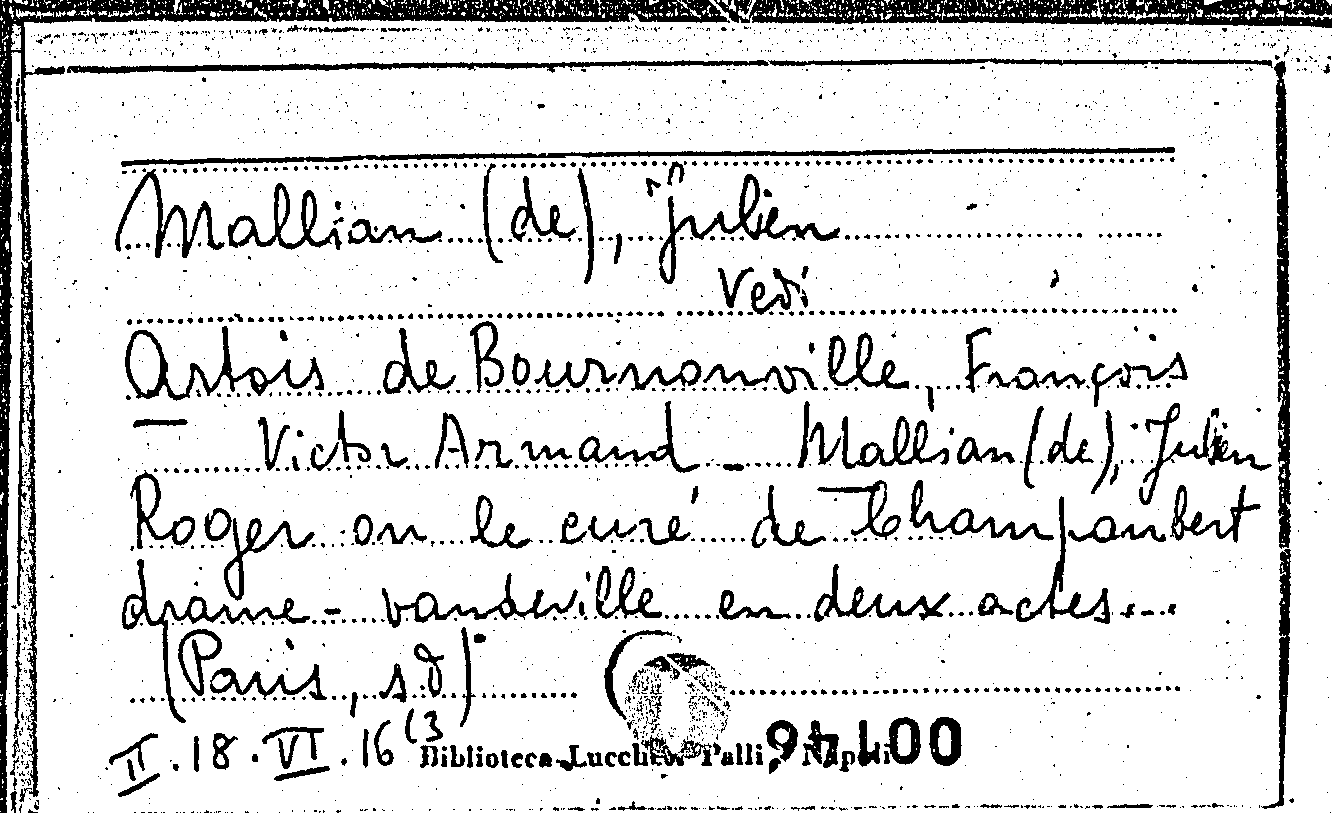 Mallian (de), Julien
Vedi
Artois de Bournonville, François
Victor Armand - Mallian (de), Julien
Roger ou le curé de Champaubert
drame-vaudeville en deux actes...
(Paris, sd)
II.18.VI.16(3
Biblioteca Lucchesi Palli, Napoli
001446